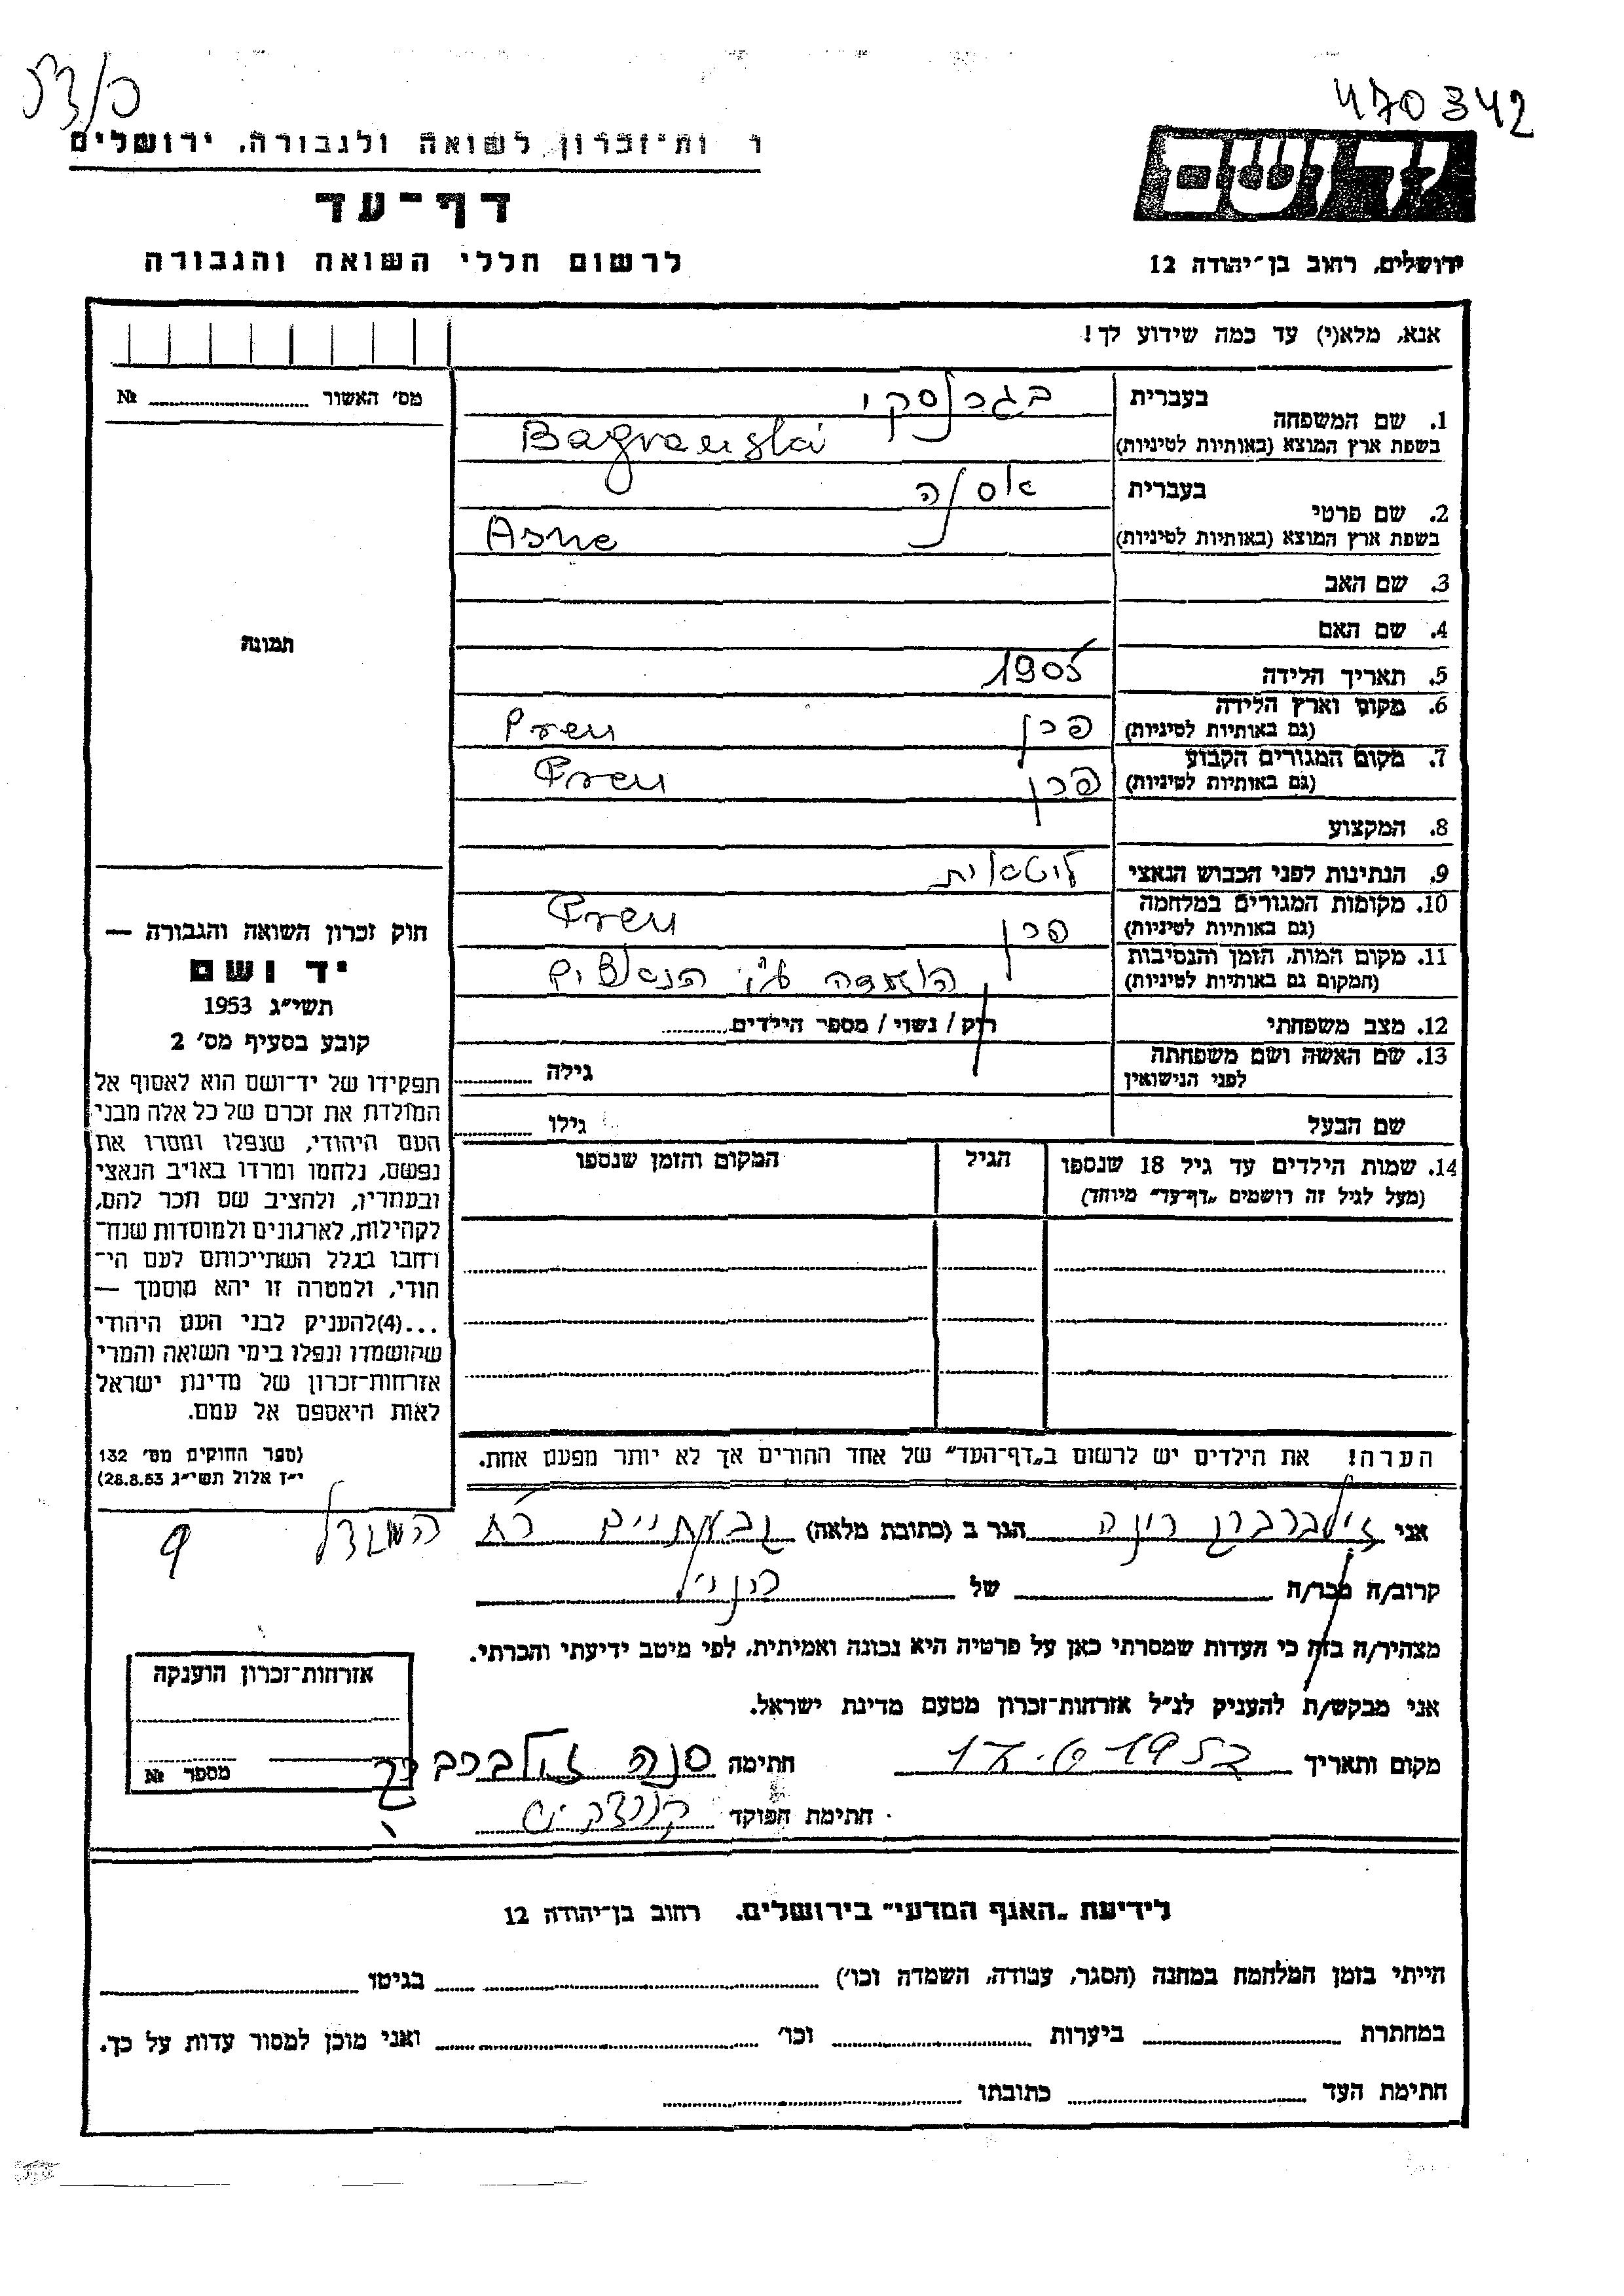 470342
ו ות־זכרון לשואה ולגבורה, ירושלים
דף־עד
לרשום חללי השואה והגבורה
ירושלים, רחוב בן־יהודה 12
אנא, מלא(י) עד כמה שידוע לך!
מס׳ האשור № 
1. שם המשפחה
בעברית בגרנסקי
בשפת ארץ המוצא (באותיות לטיניות) Bagranski
2. שם פרטי
בעברית אסנה
בשפת ארץ המוצא (באותיות לטיניות) Asne
3. שם האב
4. שם האם
תמונה
5. תאריך הלידה 1905
6. מקום וארץ הלידה
(גם באותיות לטיניות) פרן Pren
7. מקום המגורים הקבוע
(גם באותיות לטיניות) פרן Pren
8. המקצוע
9. הנתינות לפני הכבוש הנאצי ליטאית
10. מקומות המגורים במלחמה
(גם באותיות לטיניות) פרן Pren
11. מקום המות, הזמן והנסיבות
(המקום גם באותיות לטיניות) הושמדה ע״י הנאצים
12. מצב משפחתי רוק / נשוי / מספר הילדים
13. שם האשה ושם משפחתה
לפני הנישואין גילה
שם הבעל גילו
14. שמות הילדים עד גיל 18 שנספו
(מעל לגיל זה רושמים „דף־עד״ מיוחד)
הגיל
המקום והזמן שנספו
חוק זכרון השואה והגבורה —
יד ושם
תשי״ג 1953
קובע בסעיף מס׳ 2
תפקידו של יד־ושם הוא לאסוף אל
המולדת את זכרם של כל אלה מבני
העם היהודי, שנפלו ומסרו את
נפשם, נלחמו ומרדו באויב הנאצי
ובעוזריו, ולהציב שם וזכר להם,
לקהילות, לארגונים ולמוסדות שנח־
רחבו בגלל השתייכותם לעם הי־
הודי, ולמטרה זו יהא מוסמך —
...(4)להעניק לבני העם היהודי
שהושמדו ונפלו בימי השואה והמרי
אזרחות־זכרון של מדינת ישראל
לאות היאספם אל עמם.
(ספר החוקים מס׳ 132
י״ז אלול תשי״ג 28.8.53)
הערה! את הילדים יש לרשום ב„דף־העד״ של אחד ההורים אך לא יותר מפעם אחת.
אני זילברברג הגר ב (כתובת מלאה) גבעתיים רח 9
קרוב/ה מכר/ה של הנ״ל
מצהיר/ה בזה כי העדות שמסרתי כאן על פרטיה היא נכונה ואמיתית, לפי מיטב ידיעתי והכרתי.
אני מבקש/ת להעניק לנ״ל אזרחות־זכרון מטעם מדינת ישראל.
מקום ותאריך חתימה זילברברג
חתימת הפוקד
אזרחות־זכרון הוענקה
מספר №
לידיעת „האגף המדעי״ בירושלים, רחוב בן־יהודה 12
הייתי בזמן המלחמה במחנה (הסגר, עבודה, השמדה וכו׳) בגיטו
במחתרת ביערות וכו׳ ואני מוכן למסור עדות על כך.
חתימת העד כתובתו